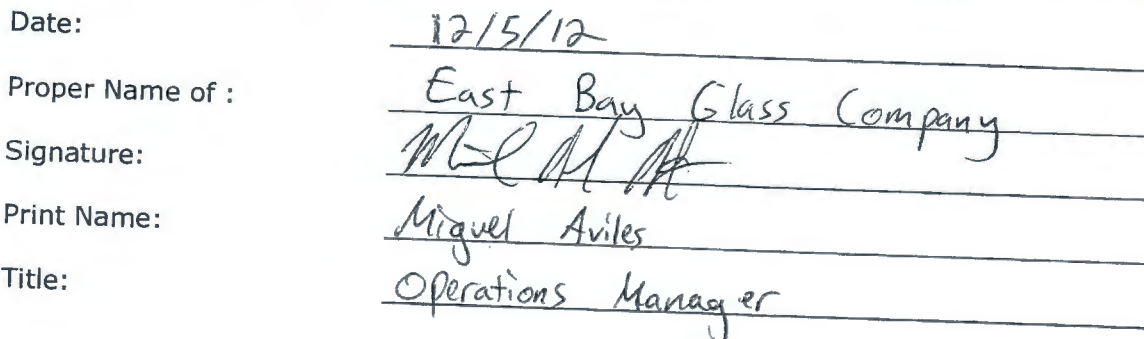 Date: 12/5/12
Proper Name of : East Bay Glass Company
Signature:
Print Name: Miguel Aviles
Title: Operations Manager